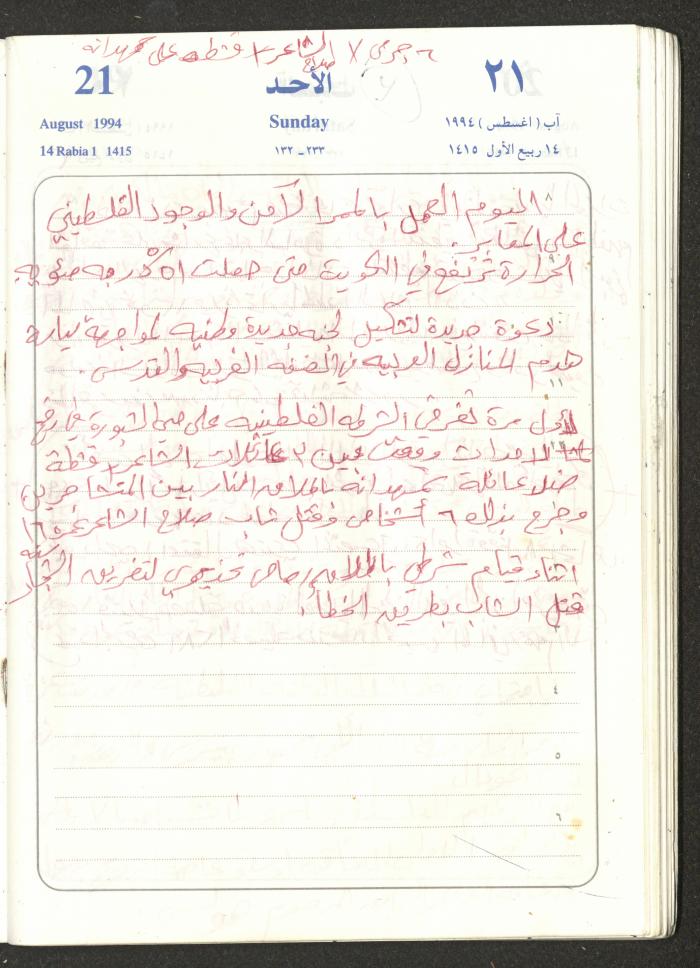 ٦ جرحى / الشاعر + قشطة على مهدانه
صلاح
21 الأحد ٢١
August 1994 Sunday آب ( اغسطس ) ١٩٩٤
14 Rabia 1 1415 ٢٣٣ - ١٣٢ ١٤ ربيع الأول ١٤١٥
٨ اليوم العمل بالممر الآمن والوجود الفلسطيني
على المعابر.
الحرارة ترتفع في الكويت حتى حملت ٥١ درجه مئويه
دعوة جديدة لتشكيل لجنه جديدة وطنيه لمواجهة سياسة
هدم المنازل العربيه في الضفه الغربيه والقدس.
لأول مرة تفرض الشرطه الفلسطينيه على حي الشبورة في رفح
الاحداث وقعت بين عائلات الشاعر + قشطة
ضد عائلة مهدانه باطلاق النار بين المتشاجرين
وجرح بذلك ٦ أشخاص وقتل شاب صلاح الشاعر عمره ١٦
سنه
اثناء قيام شرطي باطلاق رصاص تحذيري لتفريق الشجار
قتل الشاب بطريق الخطأ.
٤
٥
٦